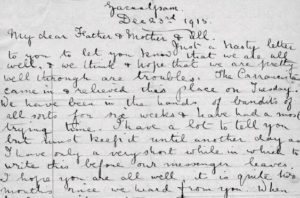 Dec 23rd 1913.
My dear Father & Mother & All.
Just a hasty letter
to you to let you know that we are all
well, & we think & hope that we are pretty
well through are troubles. The Carrancista
came in & relieved this place on Tuesday.
We have been in the hands of bandits of
all sorts for six weeks & have had a most
trying time. I have a lot to tell you
but must keep it until another day as
I have only a very short while in which to
write this before our messenger leaves.
I hope you are all well it is quite two
months since we heard from you. When